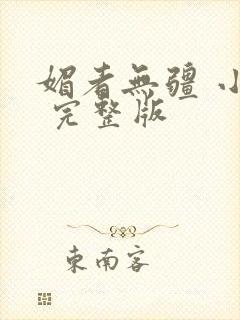 媚者無疆 小
完整版
東南客